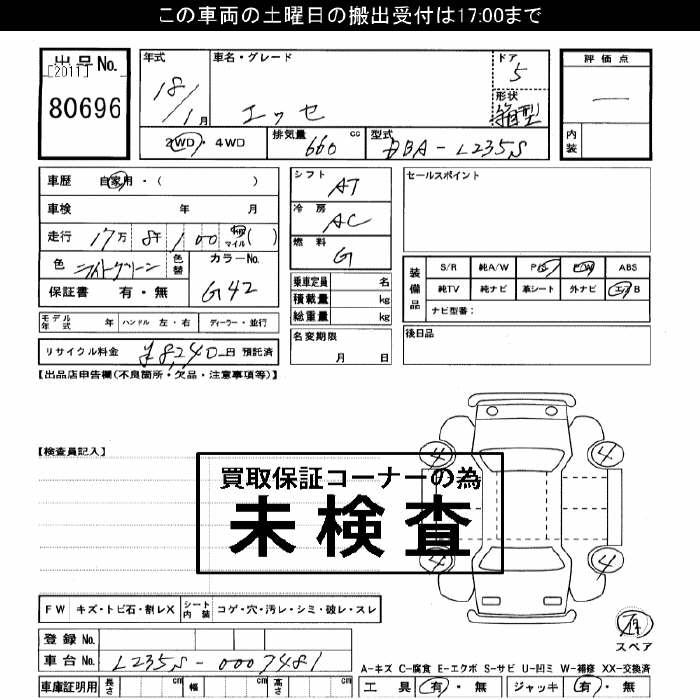 この車両の土曜日の搬出受付は17:00まで
出品No.
[2011]
80696
年式
18/1月
車名・グレード
エッセ
ドア
5
形状
箱型
評価点
―
内装
2WD・4WD
排気量
660 cc
型式
DBA-L235S
車歴 自家用・( )
車検 年 月
走行 17万 8千 100 km マイル ( )
色 ライトグリーン
色替
カラーNo.
G42
保証書 有・無
モデル年式 年 ハンドル 左・右 ディーラー・並行
リサイクル料金 ¥8,240-円 預託済
シフト
AT
冷房
AC
燃料
G
乗車定員 名
積載量 kg
総重量 kg
名変期限
月 日
セールスポイント
装備品
S/R 純A/W P/S P/W ABS
純TV 純ナビ 革シート 外ナビ エアB
ナビ型番:
後日品
【出品店申告欄(不良箇所・欠品・注意事項等)】
【検査員記入】
買取保証コーナーの為
未検査
4
4
4
4
FW キズ・トビ石・割レX
シート内装 コゲ・穴・汚レ・シミ・破レ・スレ
登録No.
車台No. L235S-0007481
車庫証明用 長さ cm 幅 cm 高さ cm
スペア
A-キズ C-腐食 E-エクボ S-サビ U-凹ミ W-補修 XX-交換済
工具 有・無 ジャッキ 有・無